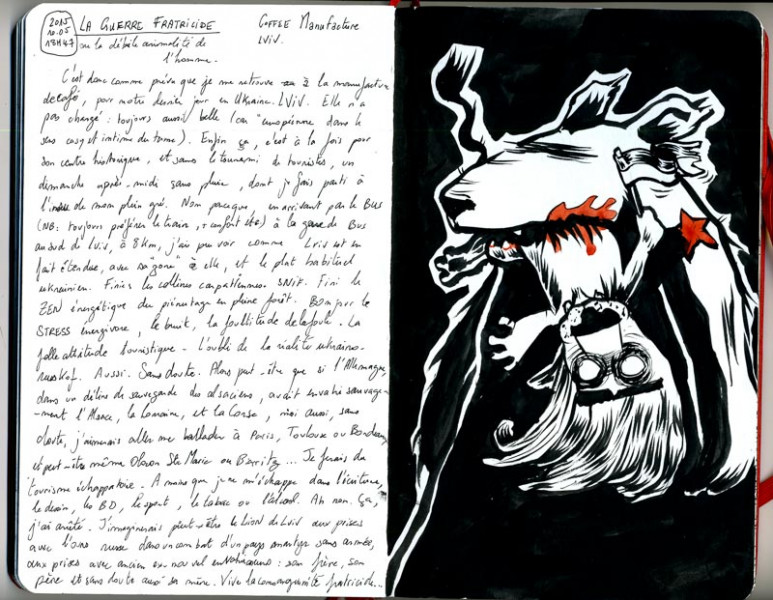 2015
10.05
18H47
LA GUERRE FRATRICIDE
COFFEE MANUFACTURE
LVIV.
ou la débile animalité de
l'homme.
C'est donc comme prévu que je me retrouve à la manufacture
de café, pour notre dernier jour en Ukraine. LVIV. Elle n'a
pas changé : toujours aussi belle (car "européenne dans le
sens cosy et intime du terme). Enfin ça, c'est à la fois pour
son centre historique, et sans le tsunami de touristes, un
dimanche après-midi sans pluie, dont je fais parti à
de mon plein gré. Non parce que, en arrivant par le BUS
(NB : toujours préférer le train, + confort etc) à la gare de Bus
au sud de Lviv, à 8km, j'ai peu voir comme Lviv est en
fait étendue, avec sa "zone" à elle, et le plat habituel
ukrainien. Finies les collines carpatiennes. SNIF. Fini le
ZEN énergétique du piémontage en pleine forêt. Bonjour le
STRESS énergivore, le bruit, la foultitude de la foule. La
folle attitude touristique - L'oubli de la réalité ukraino-
russkof. Aussi. Sans doute. Alors peut-être que si l'Allemagne,
dans un délire de sauvegarde des alsaciens, avait envahi sauvage-
-ment l'Alsace, la Lorraine, et la Corse, moi aussi, sans
doute, j'aimerais aller me ballader à Paris, Toulouse ou Bordeaux,
et peut-être même Oloron Ste Marie ou Biarritz... Je ferais du
tourisme échappatoire. A moins que je ne m'échappe dans l'écriture,
le dessin, la BD, le sport, le tabac ou l'alcool. Ah non. Ça,
j'ai arrêté. J'imaginerais peut-être le lion de Lviv aux prises
avec l'ours russe dans un combat d'un pays martyr sans armée,
aux prises avec ancien ex-nouvel envahisseur : son frère, son
père et sans doute aussi sa mère. Vive la consanguinité fratricide...